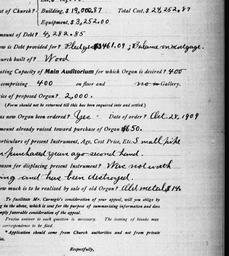 st of Church? Building, $19,000.87 Total Cost, $24,252.87
Equipment, $3,252.00
mount of Debt? 4,282.85
w is Debt provided for? Pledge $3461.09; Balance in mortgage.
hurch built of? Wood
ating Capacity of Main Auditorium for which Organ is desired? 400
comprising 400 on floor and no in Gallery.
ice of proposed Organ? 2,000.
(Form should not be returned till this has been enquired into and settled.)
new Organ been Ordered? Yes Date of order? Oct. 24, 1909
mount already raised toward purchase of Organ $650.
articulars of present Instrument, Age, Cost Price, Etc. Small pipe
purchased years ago second hand.
eason for displacing present Instrument? Was not worth
ing and has been destroyed.
ow much is to be realized by sale of old Organ? Old metal $14
To facilitate Mr. Carnegie's consideration of your appeal, will you oblige by
ng to the above, which is sent for the purpose of summarizing information and does
mply favorable consideration of the appeal.
Precise answer to each question is necessary. The issuing of blanks may
correspondence to be filed.
* Application should come from Church authorities and not from private
Respectfully,